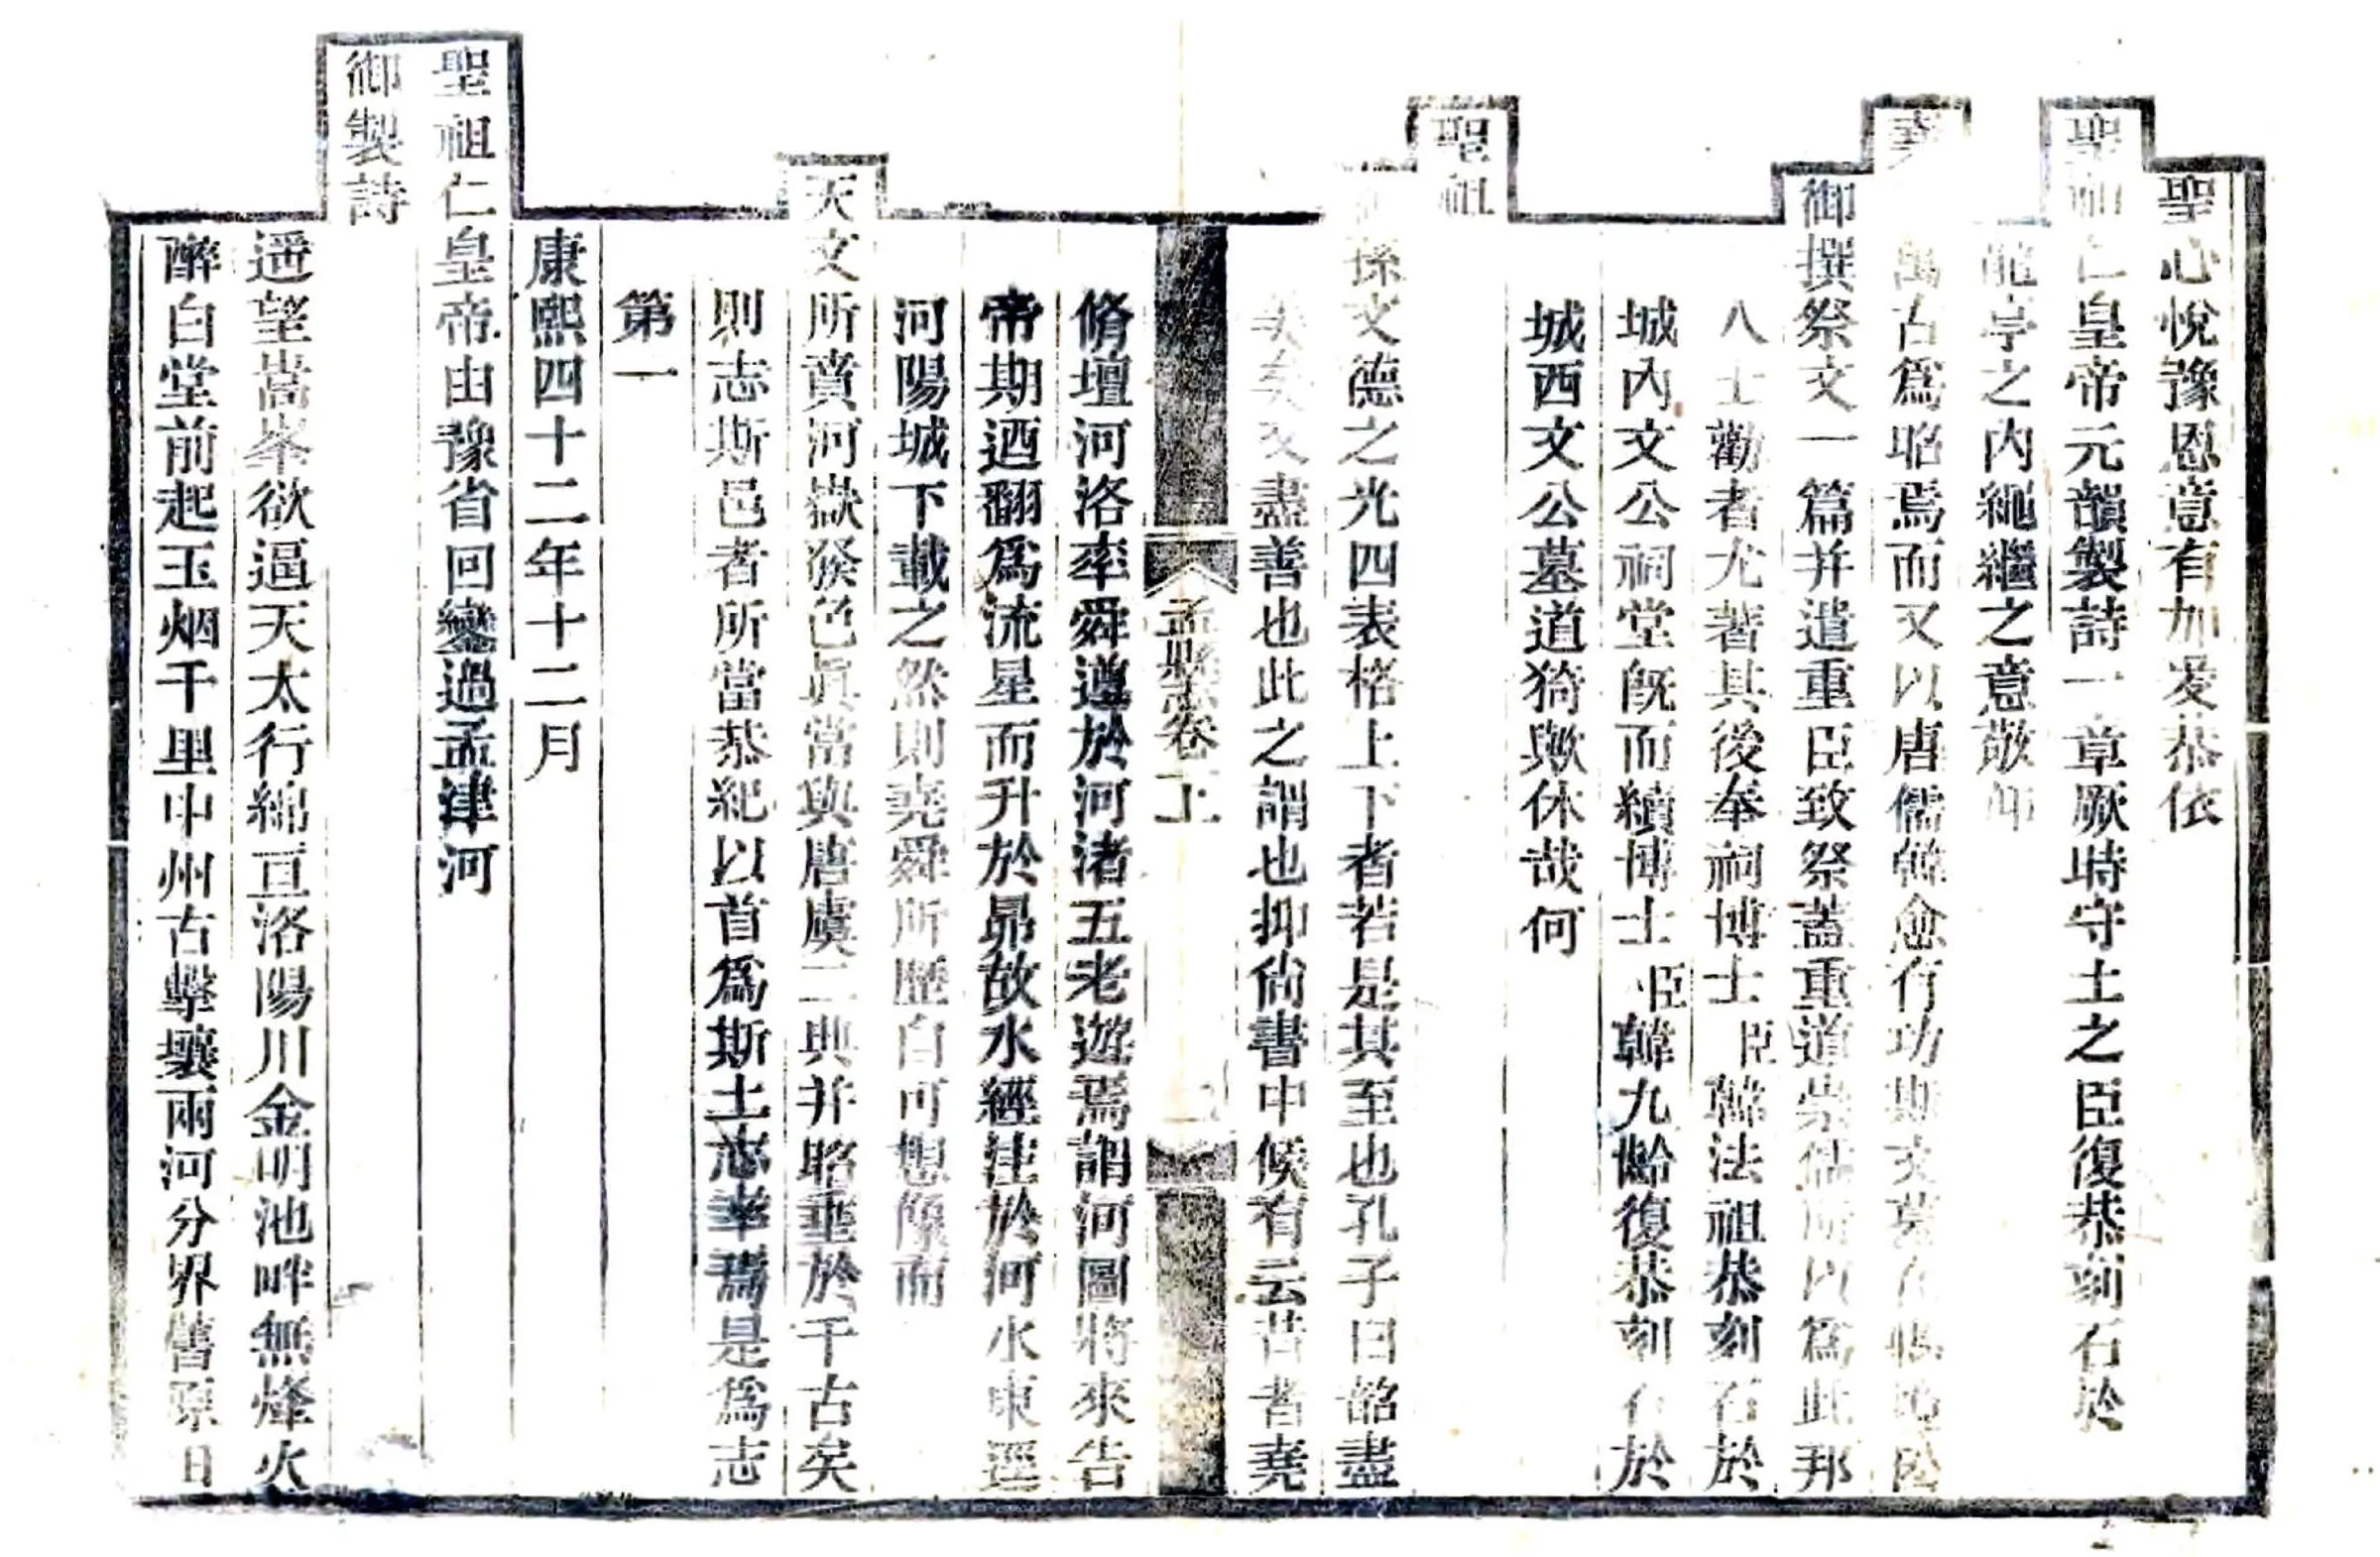 聖心悅豫恩意有加爰恭依
聖祖仁皇帝元韻製詩一章厥時守土之臣復恭刻石於
龍亭之內繩繼之意敬仰
萬古爲昭焉而又以唐儒韓愈有功斯文
御撰祭文一篇并遣重臣致祭蓋重道崇儒所以爲此邦
人士勸者尤著其後奉祠博士臣韓法祖恭刻石於
城內文公祠堂旣而續博士臣韓九齡復恭刻石於
城西文公墓道猗歟休哉何
聖祖
孫文德之光四表格上下者若是其至也孔子曰韶盡
美矣又盡善也此之謂也抑尙書中候有云昔者堯
孟縣志卷上
脩壇河洛率舜遵於河渚五老遊焉謂河圖將來告
帝期迺翻爲流星而升於昴故水經注於河水東逕
河陽城下載之然則堯舜所歷自可想像而
天文所賁河嶽發色眞當與唐虞二典并昭垂於千古矣
則志斯邑者所當恭紀以首爲斯土志幸焉是爲志
第一
康熙四十二年十二月
聖祖仁皇帝由豫省回鑾過孟津河
御製詩
遥望嵩峯欲逼天太行綿亘洛陽川金明池畔無烽火
醉白堂前起玉烟千里中州古擊壤兩河分界舊原日